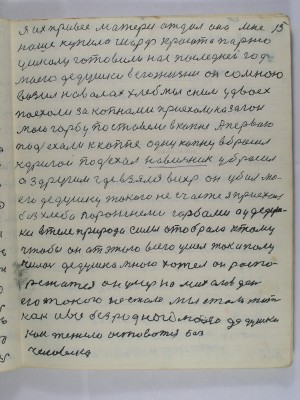 я их привез матери отдал она мне 15
наше купила шарф красота парню
готовили на последней год
моего дедушки в его жизни он со мною
возил на волах хлеб мы с ним у двоех
поехали за копнами приехали
мою гарбу поставели в копне я первого
подъехали к копне одну копну вбросил
к другой подъехал навильник убросил
а з другим где взялся вихр он убил мо-
его дедушку такого несчастя я приехал
без хлеба порожнеми гарбами а у дедуш-
ки в теле природа силы отобрало к тому
чтобы он от этого всего ушел токи полу-
чилос дедушка много хотел он распо-
режатся он умер на мих
его токого не стало мы стали жить
как и все без родного моего дедушки
как тежило остоватся без
человека